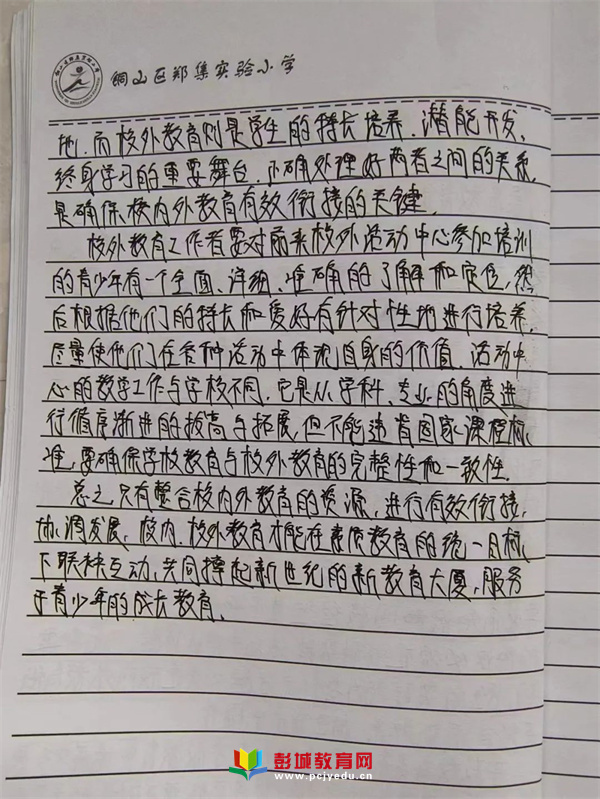 铜山区郑集实验小学
地.而校外教育则是学生的特长培养.潜能开发、
终身学习的重要舞台.正确处理好两者之间的关系,
是确保校内外教育有效衔接的关键.
校外教育工作者要对前来校外活动中心参加培训
的青少年有一个全面、详细、准确的了解和定位,然
后根据他们的特长和爱好有针对性地进行培养.
尽量使他们在各种活动中体现自身的价值.活动中
心的教学工作与学校不同.它是从学科、专业的角度进
行循序渐进的拔高与拓展,但不能违背国家课程标
准,要确保学校教育与校外教育的完整性和一致性.
总之,只有整合校内外教育的资源,进行有效衔接,
协调发展,校内、校外教育才能在素质教育的统一目标
下联袂互动,共同撑起新世纪的新教育大厦,服务
于青少年的成长教育.
彭城教育网
www.pcjyedu.cn